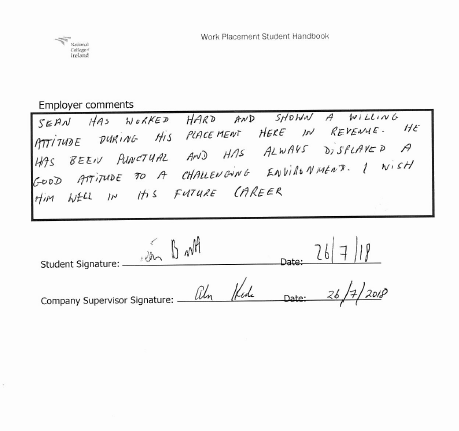 National
College of
Ireland
Work Placement Student Handbook
Employer comments
SEAN HAS WORKED HARD AND SHOWN A WILLING
ATTITUDE DURING HIS PLACEMENT HERE IN REVENUE. HE
HAS BEEN PUNCTUAL AND HAS ALWAYS DISPLAYED A
GOOD ATTITUDE TO A CHALLENGING ENVIRONMENT. I WISH
HIM WELL IN HIS FUTURE CAREER
Student Signature: Date: 26/7/18
Company Supervisor Signature: Date: 26/7/2018